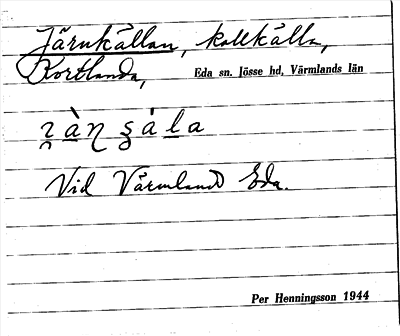 Järnkällan, kallkälla,
Kortlanda, Eda sn. Jösse hd, Värmlands län
Vid Värmlands Eda.
Per Henningsson 1944